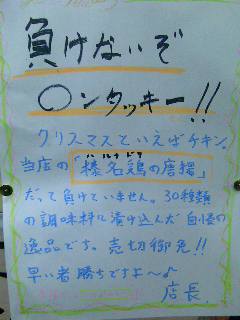 負けないぞ
〇ンタッキー!!
クリスマスといえばチキン。
当店の「榛名鶏の唐揚」
だって負けていません。30種類
の調味料に漬け込んだ自慢の
逸品です。売切御免!!
早い者勝ちですよ～♪
店長